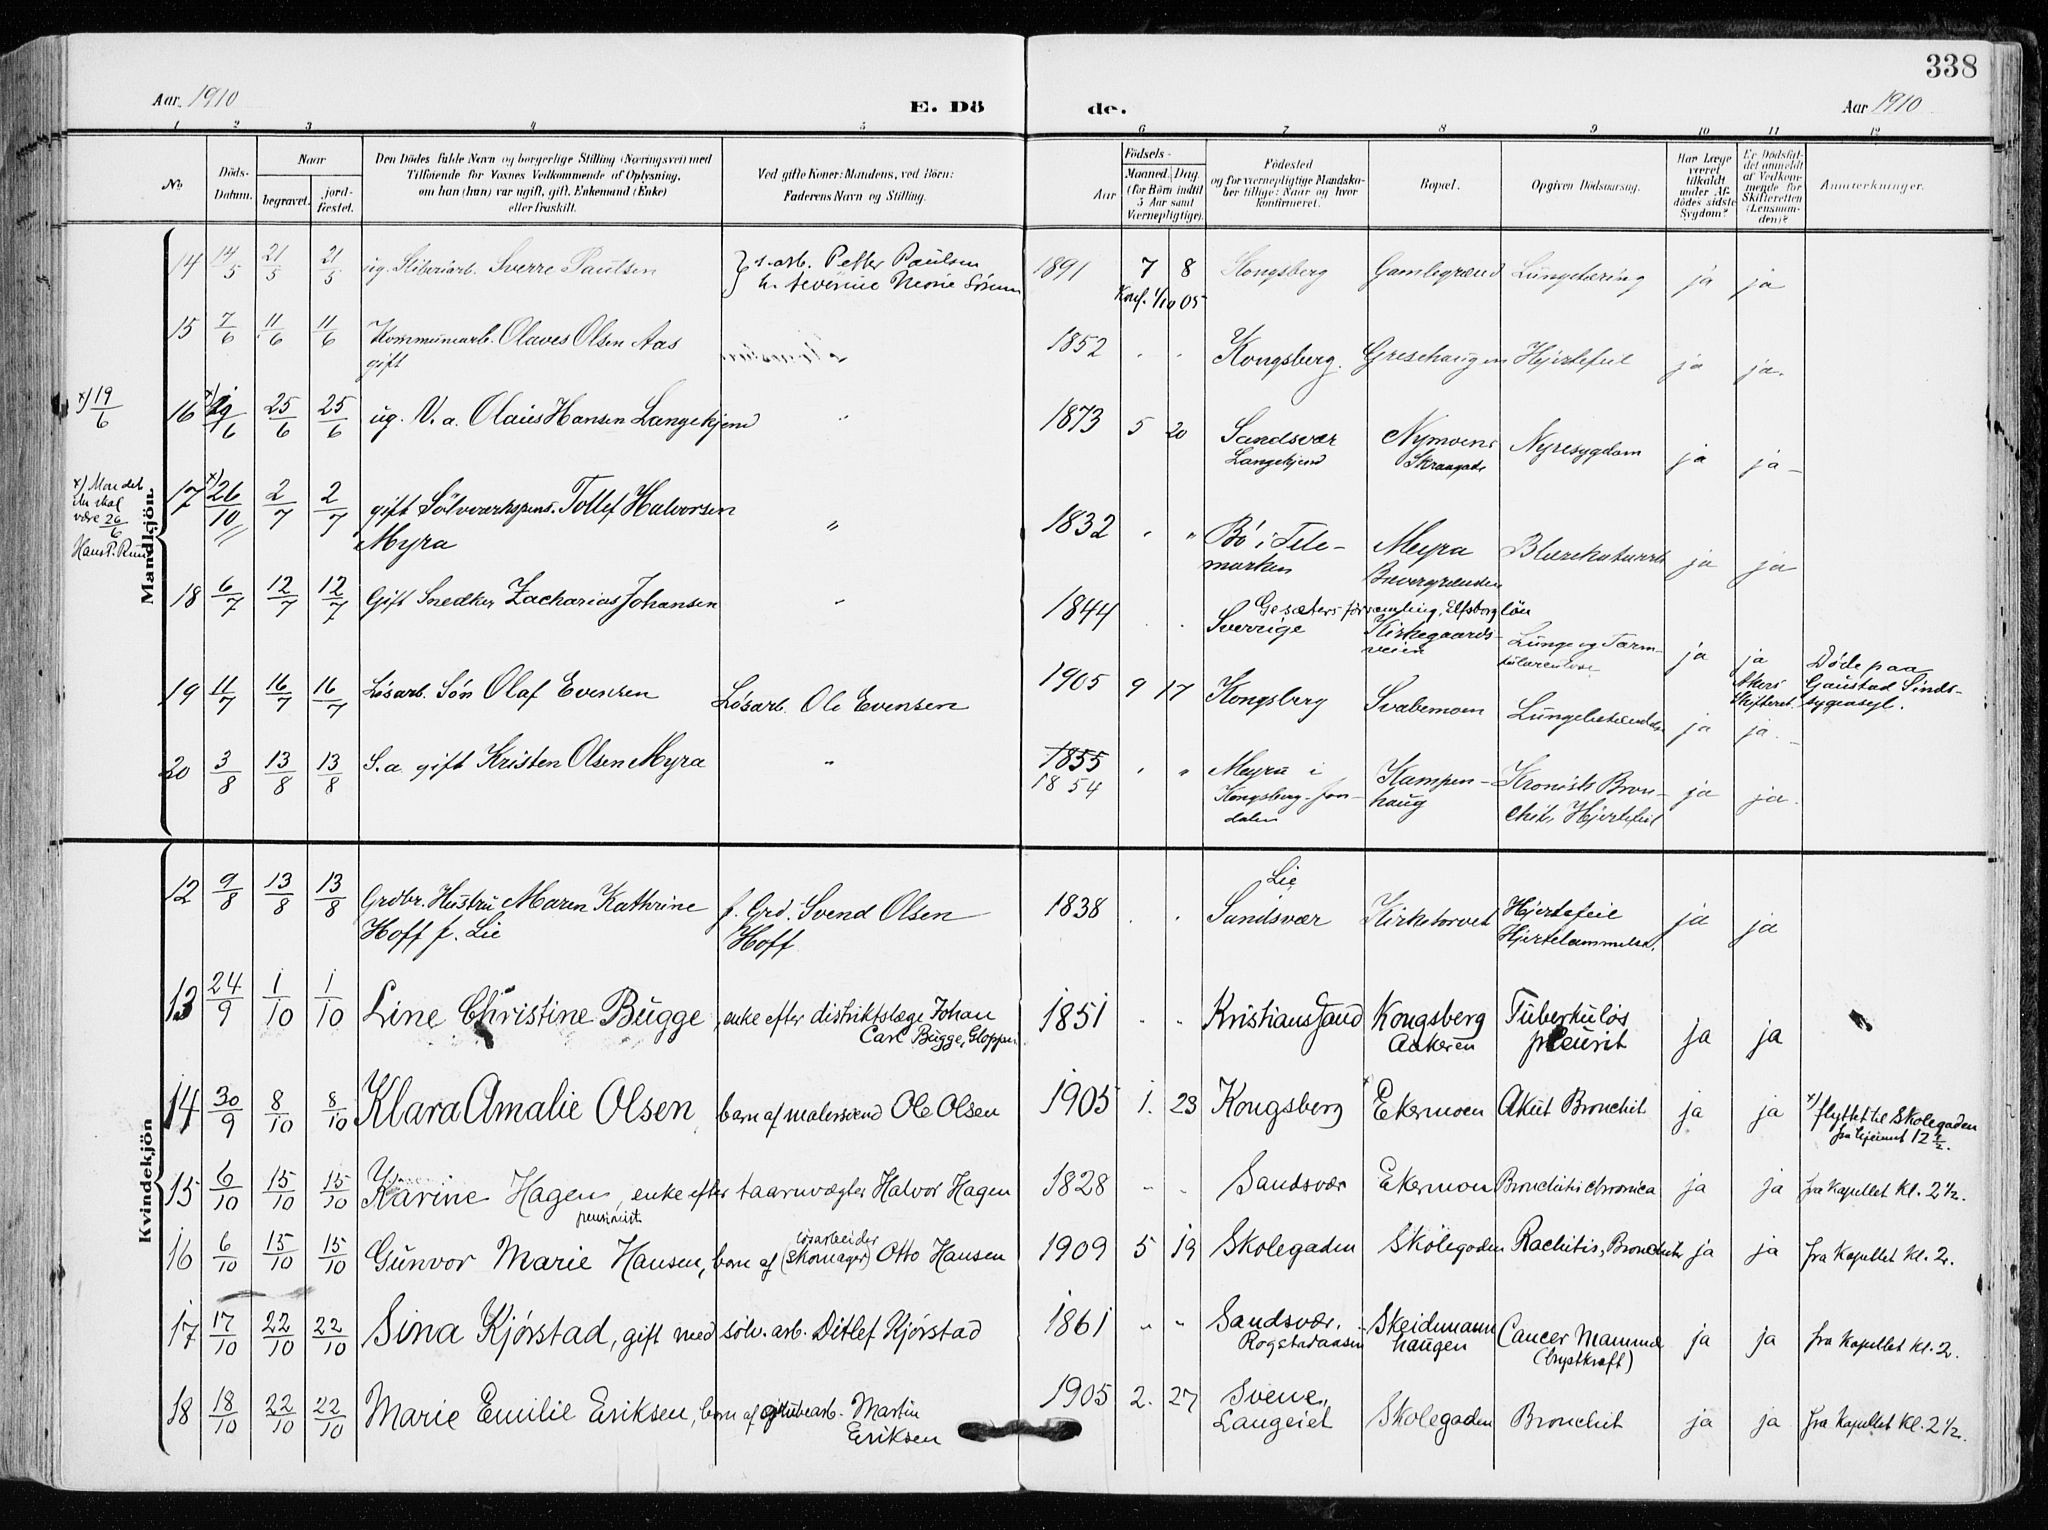 338
Aar 1910
E. Dö
de.
Aar 1910
1 2 3 4 5 6 7 8 9 10 11 12
No
Döds-Datum.
Naar
begravet.
jordfæstet.
Den Dödes fulde Navn og borgerlige Stilling (Næringsvei) med
Tilföiende for Voxnes Vedkommende af Oplysning,
om han (hun) var ugift, gift, Enkemand (Enke)
eller fraskilt.
Ved gifte Koner: Mandens, ved Börn:
Faderens Navn og Stilling.
Födsels-
Aar
Maaned. Dag.
(for Börn indtil
5 Aar samt
Værnepligtige).
Födested
og for værnepligtige Mandskaber tillige: Naar og hvor
konfirmeret.
Bopæl.
Opgiven Dödsaarsag.
Har Læge
været
tilkaldt
under Afdödes sidste
Sygdom?
Er Dödsfaldet anmeldt
af Vedkommende for
Skifteretten
(Lensmanden)?
Anmærkninger.
Mandkjön.
14 14/5 21/5 21/5 ug. Sliberiarb. Sverre Paulsen s.arb. Petter Paulsen 1891 7 8 Kongsberg Gamlegrænd Lungetæring ja ja
h. Severine Marie
Konf. 1/10 05
15 7/6 11/6 11/6 Kommunarb. Olaves Olsen Aas 1852 " " Kongsberg. Hjertefeil ja ja.
gift
x) 19/6
16 x) 19/6 25/6 25/6 ug. V. a. Olaus Hansen Langekjend " 1873 5 20 Sandsvær Nymoens Nyresygdom ja ja
Langekjend
x) Man det
skal
være 26/6
Hans P. Ruud
17 x) 26/10 2/7 2/7 gift Sölvverkspens. Tollef Halvorsen " 1832 " " Bö i Tele- Meyra Blærekatarrh ja ja
Myra marken Bævergrænden
18 6/7 12/7 12/7 Gift Snedker Zacharias Johansen " 1844 . . Gesæters församling, Elfsborg län
Sverrige Kirkegaards- Lunge og Tarm- ja ja
veien tuberkulose
19 11/7 16/7 16/7 Løsarb. Sön Olaf Evensen Løsarb. Ole Evensen 1905 9 17 Kongsberg Svabemoen ja ja.
Akers
Skifteret.
Døde paa
Gaustad Sinds-
sygeasyl.
20 3/8 13/8 13/8 S.a. gift Kristen Olsen Myra " 1855 " " Meyra i Kampen- Kronisk Bron- ja ja.
1854 Kongsberg. Jon- haug chit, Hjertefeil
dalen
Kvindekjön
12 9/8 13/8 13/8 Grdbr. Hustru Maren Kathrine f. Grd. Svend Olsen 1838 . . Lie
Sandsvær Kirketorvet Hjertefeil ja ja
Hoff f. Lie Hoff Hjertelammelse.
13 24/9 1/10 1/10 Line Christine Bugge, enke efter distriktslæge Johan 1851 " " Kristianssand Kongsberg Tuberkuløs ja ja
Carl Bugge, Gloppen Aakeren pleurit
14 30/9 8/10 8/10 Klara Amalie Olsen, barn af malersvend Ole Olsen 1905 1. 23 Kongsberg x Ekermoen Akut Bronchit ja ja x) flyttet til Skolegaden
fra hjemmet 12 1/2.
15 6/10 15/10 15/10 Karine Hagen, enke efter taarnvægter Halvor Hagen 1828 " " Sandsvær Ekermoen Bronchitis chronica ja ja fra Kapellet Kl. 2 1/2.
pensionist
16 6/10 15/10 15/10 Gunvor Marie Hansen, barn af løsarbeider (skomager) Otto Hansen 1909 5 19 Skolegaden Skolegaden Rachitis, Bronchit ja ja fra Kapellet Kl. 2.
17 17/10 22/10 22/10 Sina Kjørstad, gift med sølv. arb. Ditlef Kjørstad 1861 " " Sandsvær, Skeidmann Cancer Mamma ja ja fra Kapellet Kl. 2.
Rogstadaasen haugen (brystkræft)
18 18/10 22/10 22/10 Marie Emilie Eriksen, barn af grubearb. Martin 1905 2. 27 Svene, Skolegaden Bronchit ja ja fra Kapellet Kl. 2 1/2.
Eriksen Langeiet